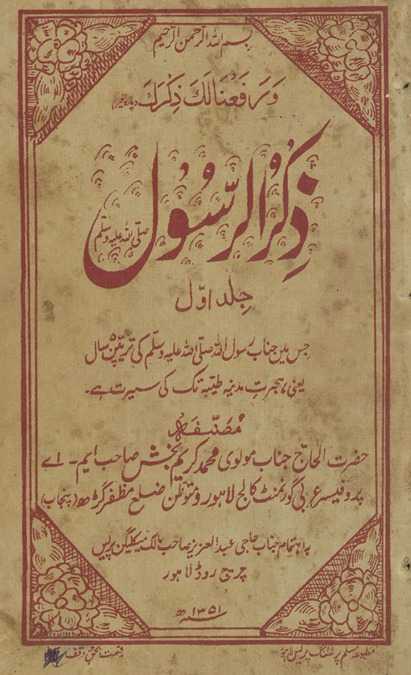 بسم اللہ الرحمن الرحیم
وَرَفَعْنَا لَكَ ذِكْرَكَ
ذِکرُ الرّسُول
صلی اللہ علیہ وسلم
جلد اوّل
جس میں جناب رسول اللہ صلی اللہ علیہ وسلم کی ترپن ۵۳ سال
یعنی ہجرت مدینہ طیبہ تک کی سیرت ہے۔
مصنفہ
حضرت الحاج جناب مولوی محمد کریم بخش صاحب ایم۔ اے
پروفیسر عربی گورنمنٹ کالج لاہور و متوطن ضلع مظفر گڑھ (پنجاب)
بہ اہتمام جناب حاجی عبدالعزیز صاحب مالک میکلیگن پریس
چرچ روڈ لاہور
۱۳۵۱ھ